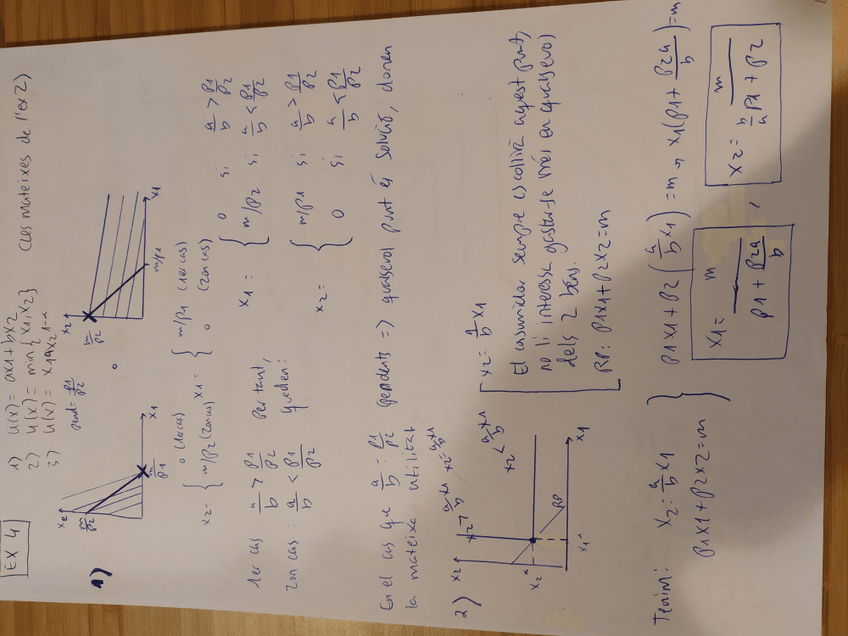 EX 4
1) u(x) = ax1 + bx2
2) u(x) = min {x1, x2} (Les mateixes de l'ex 2)
3) u(x) = x1^a x2^1-a
1)
pend = p1/p2
x2 m/p2 m/p1 x1
x2 m/p2 m/p1 x1
x2 = { 0 (1er cas) m/p2 (2on cas) x1 = { m/p1 (1er cas) 0 (2on cas)
1er cas: a/b > p1/p2 Per tant,
2on cas: a/b < p1/p2 queden:
x1 = { 0 si a/b > p1/p2
m/p2 si a/b < p1/p2
x2 = { m/p1 si a/b > p1/p2
0 a/b < p1/p2
En el cas que a/b = p1/p2 pendents => qualsevol punt és solució, donen
la mateixa utilitat
2)
x2 x2 > a/b x1 x2 = a/b x1
x2 < a/b x1
x2* x1* RP x1
x2 = a/b x1
El consumidor sempre escollirà aquest punt,
no li interessa gastar-se més en qualsevol
dels 2 béns.
RP: p1x1 + p2x2 = m
Tenim: x2 = a/b x1
p1x1 + p2x2 = m
} p1x1 + p2 (a/b x1) = m → x1 (p1 + p2a/b) = m
x1 = m / p1 + p2a/b , x2 = m / b/a p1 + p2